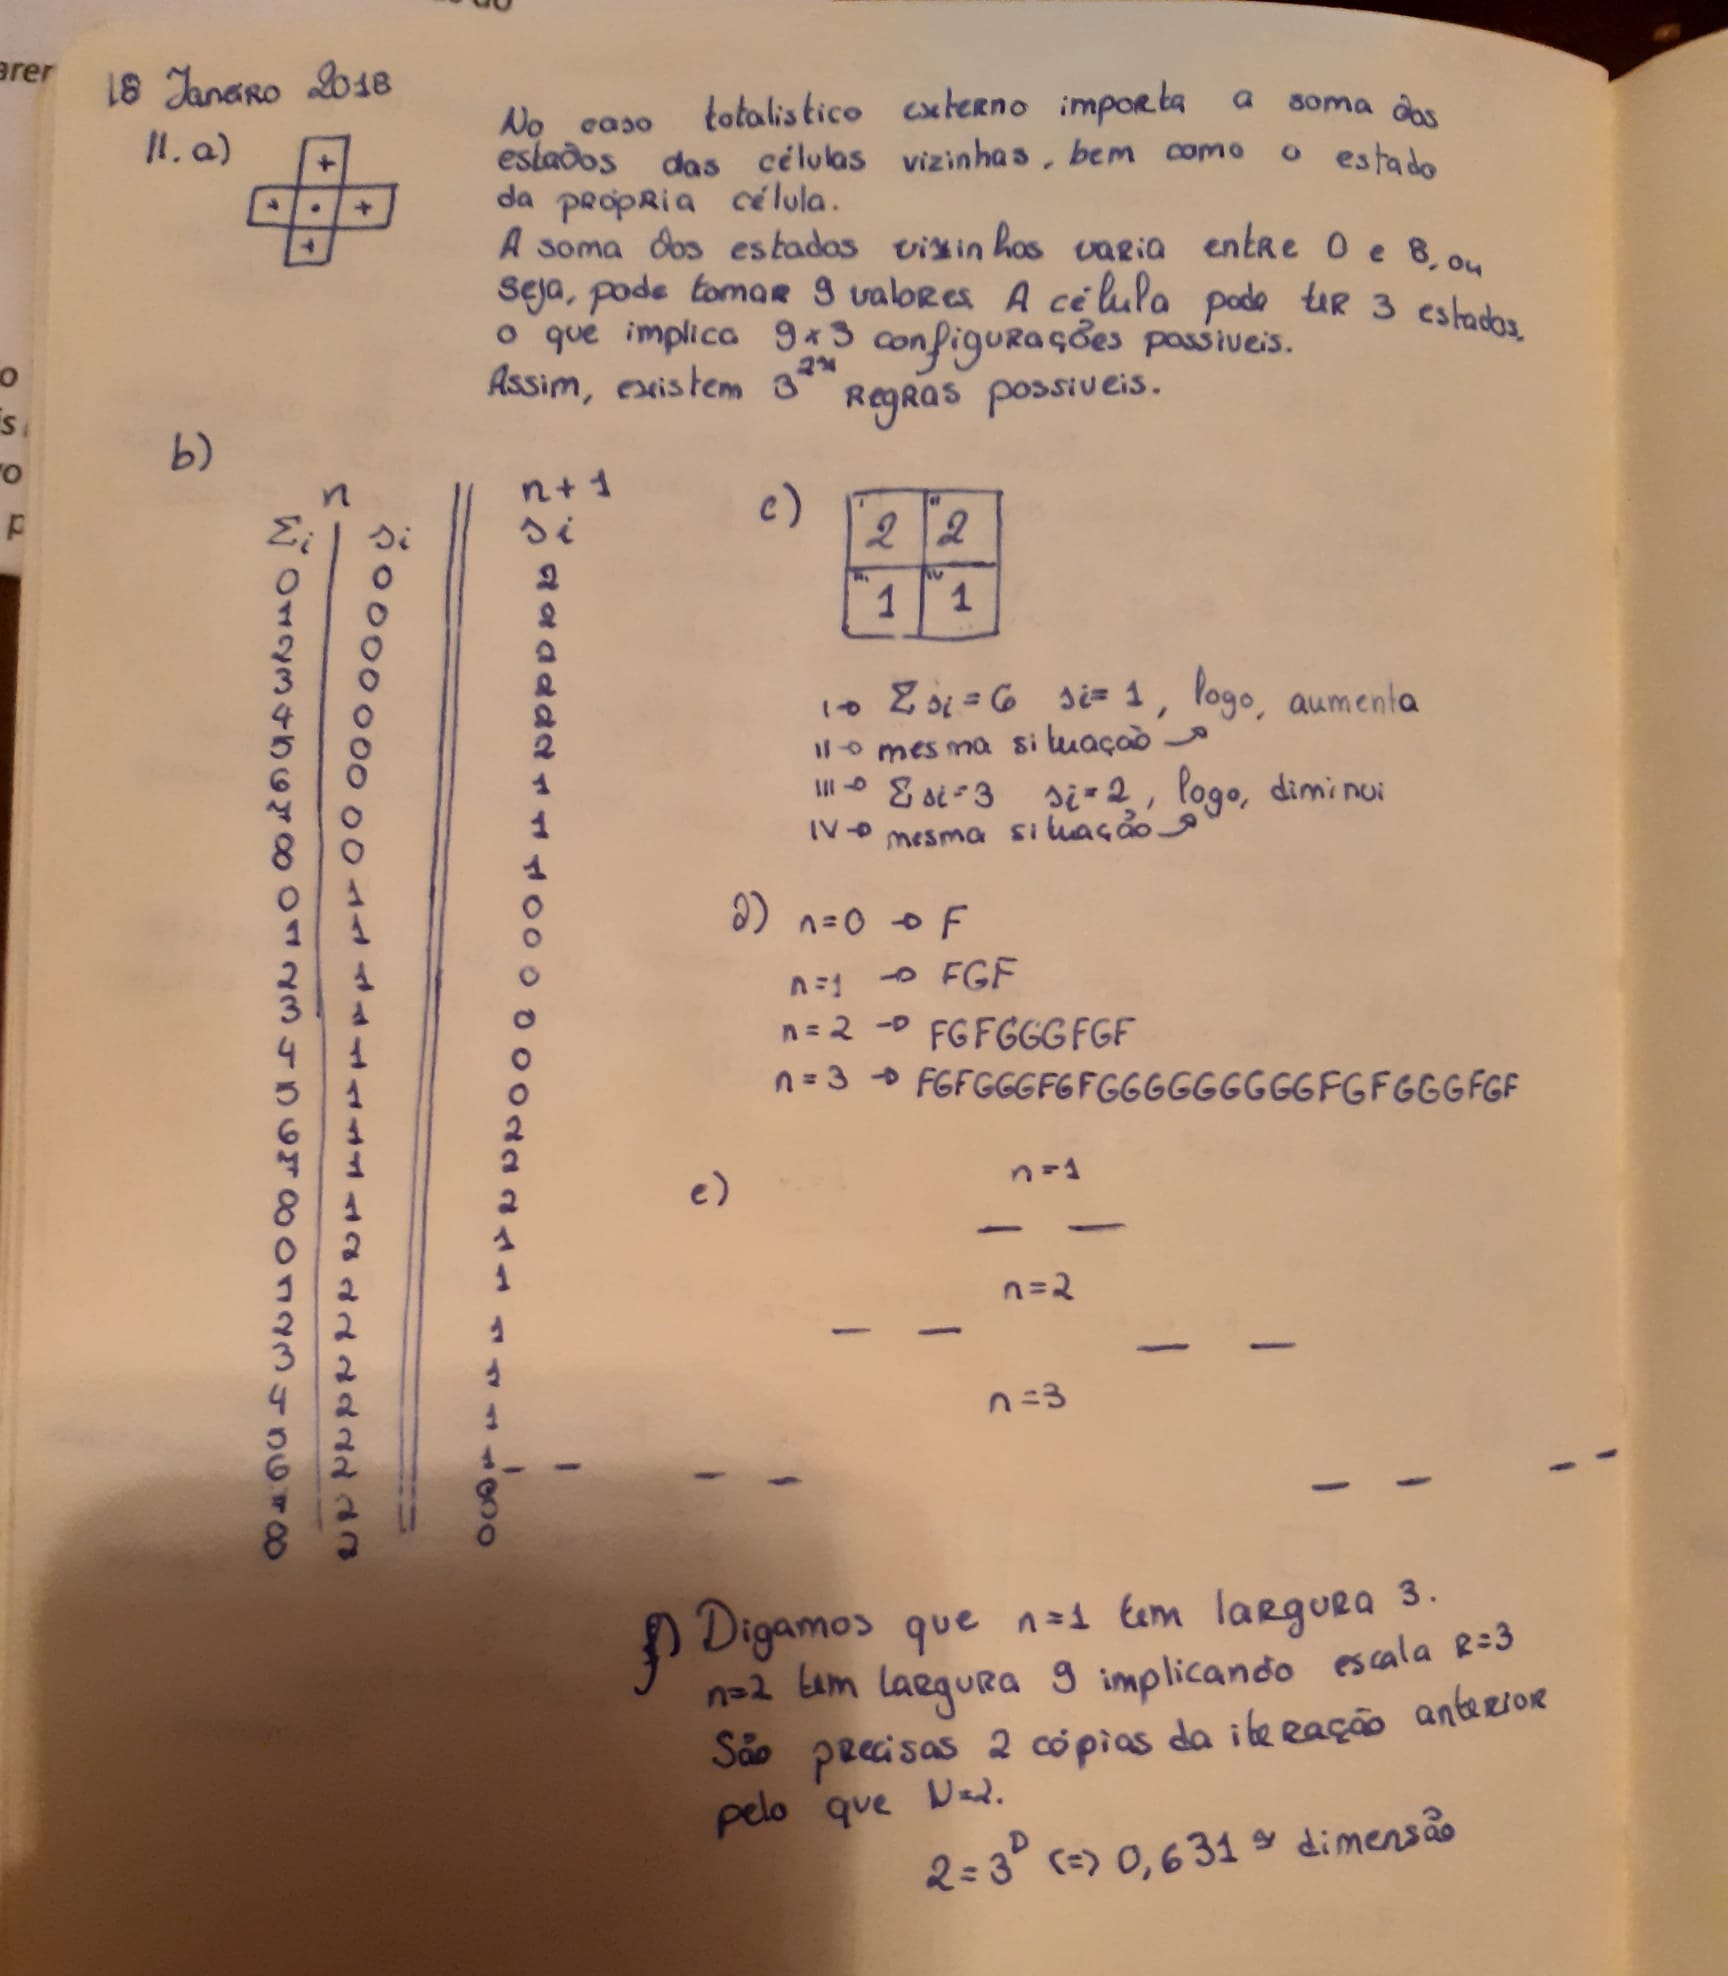 arer
18 Janeiro 2018
11. a)
+
+ . +
+
No caso totalistico externo importa a soma dos
estados das células vizinhas, bem como o estado
da própria célula.
A soma dos estados vizinhos varia entre 0 e 8, ou
seja, pode tomar 9 valores. A célula pode ter 3 estados,
o que implica 9x3 configurações possiveis.
Assim, existem 3^27 Regras possiveis.
b)
n n+1
Σi si si
0 0 2
1 0 2
2 0 2
3 0 2
4 0 2
5 0 2
6 0 1
7 0 1
8 0 1
0 1 0
1 1 0
2 1 0
3 1 0
4 1 0
5 1 0
6 1 2
7 1 2
8 1 2
0 2 1
1 2 1
2 2 1
3 2 1
4 2 1
5 2 1
6 2 0
7 2 0
8 2 0
c)
I 2 II 2
III 1 IV 1
I→ Σsi=6 si=1, logo, aumenta
II→ mesma situação ↗
III→ Σsi=3 si=2, logo, diminui
IV→ mesma situação ↗
d) n=0 → F
n=1 → FGF
n=2 → FGFGGGFGF
n=3 → FGFGGGFGFGGGGGGGGGFGFGGGFGF
e)
n=1
n=2
n=3
f) Digamos que n=1 tem largura 3.
n=2 tem largura 9 implicando escala R=3
São precisas 2 cópias da iteração anterior
pelo que N=2.
2=3^D (=) 0,631 ≈ dimensão